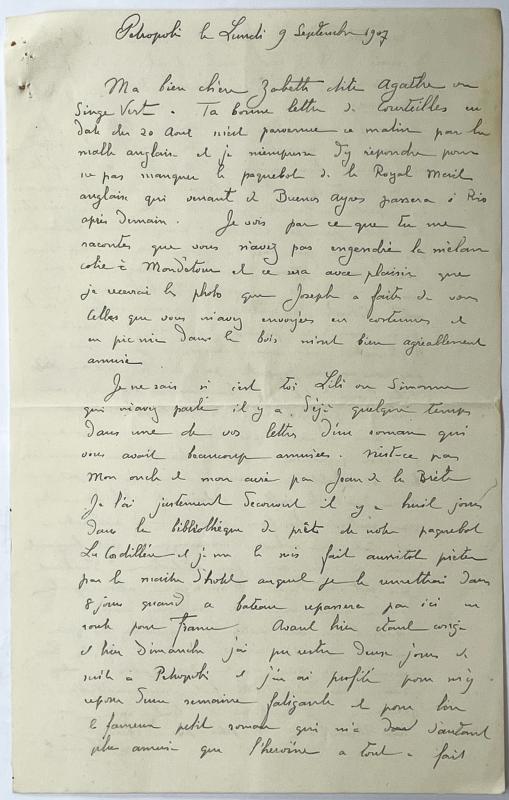 Petropolis le Lundi 9 Septembre 1907
Ma bien chère Zabeth dite Agathe ou
Singe Vert. Ta bonne lettre de Courteilles en
date du 20 Aout m'est parvenue ce matin par la
malle anglaise et je m'empresse d'y répondre pour
ne pas manquer le paquebot de la Royal Mail
anglaise qui venant de Buenos Ayres passera à Rio
après demain. Je vois par ce que tu me
racontes que vous n'avez pas engendré la mélan
colie à Mondétour et ce sera avec plaisir que
je recevrai la photo que Joseph a faite de vous
Celles que vous m'avez envoyées en costumes et
en pic nic dans les bois m'ont bien agréablement
amusé
Je ne sais si c'est toi Lili ou Simonne
qui m'avez parlé il y a déjà quelque temps
dans une de vos lettres d'un roman qui
vous avait beaucoup amusées. N'est-ce pas
Mon oncle et mon curé par Jean de la Brète
Je l'ai justement découvert il y a huit jours
dans la bibliothèque de prêts de notre paquebot
La Cordillère et je me le suis fait aussitot prêter
par le maitre d'hotel auquel je le remettrai dans
8 jours quand ce bateau repassera par ici en
route pour France. Avant hier étant congé
et hier Dimanche j'ai pu rester deux jours de
suite à Petropolis et j'en ai profité pour m'y
reposer d'une semaine fatigante et pour lire
le fameux petit roman qui m'a d'autant
plus amusé que l'héroïne a tout à fait